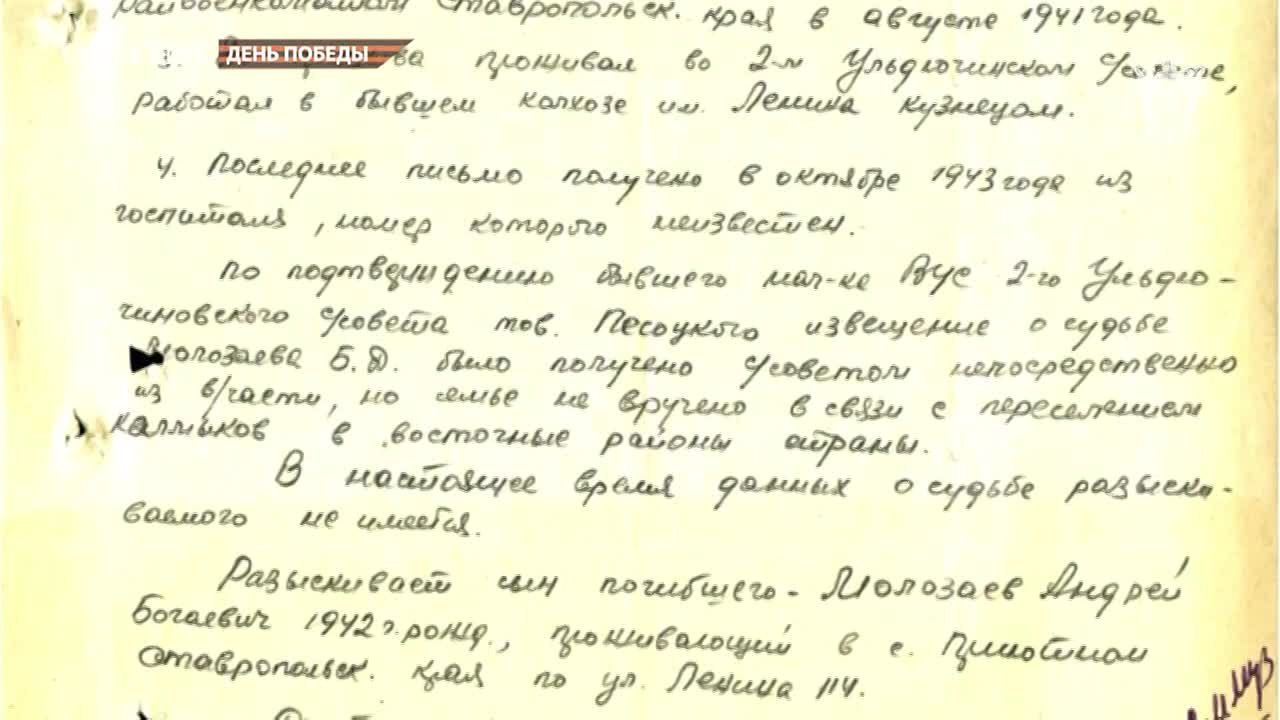 райвоенкоматом Ставропольск. края в августе 1941 года.
ДЕНЬ ПОБЕДЫ
3. проживал во 2-м Ульдючинском с/совете,
работал в бывшем колхозе им. Ленина кузнецом.
4. Последнее письмо получено в октябре 1943 года из
госпиталя, номер которого неизвестен.
По подтверждению бывшего нач-ка ВУС 2-го Ульдю-
чиновского с/совета тов. Песоцкого извещение о судьбе
Молозаева Б.Д. было получено с/советом непосредственно
из в/части, но семье не вручено в связи с переселением
калмыков в восточные районы страны.
В настоящее время данных о судьбе разыски-
ваемого не имеется.
Разыскивает сын погибшего - Молозаев Андрей
Богаевич 1942 г. рожд., проживающий в с. Приютном
Ставропольск. края по ул. Ленина 114.